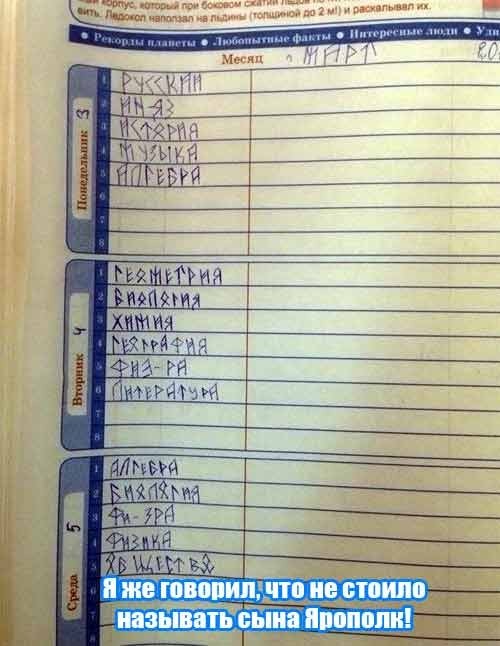 корпус, который при боковом сжатии льдов
вить. Ледокол наползал на льдины (толщиной до 2 м!) и раскалывал их.
• Рекорды планеты • Любопытные факты • Интересные люди •
Месяц МАРТ 20
Понедельник 3
1 РУССКИЙ
2 ИН-ЯЗ
3 ИСТОРИЯ
4 МУЗЫКА
5 АЛГЕБРА
6
7
8
Вторник 4
1 ГЕОМЕТРИЯ
2 БИОЛОГИЯ
3 ХИМИЯ
4 ГЕОГРАФИЯ
5 ФИЗ-РА
6 ЛИТЕРАТУРА
7
8
Среда 5
1 АЛГЕБРА
2 БИОЛОГИЯ
3 ФИ-ЗРА
4 ФИЗИКА
5 ОБЩЕСТВО
6
7
8
Я же говорил, что не стоило
называть сына Ярополк!